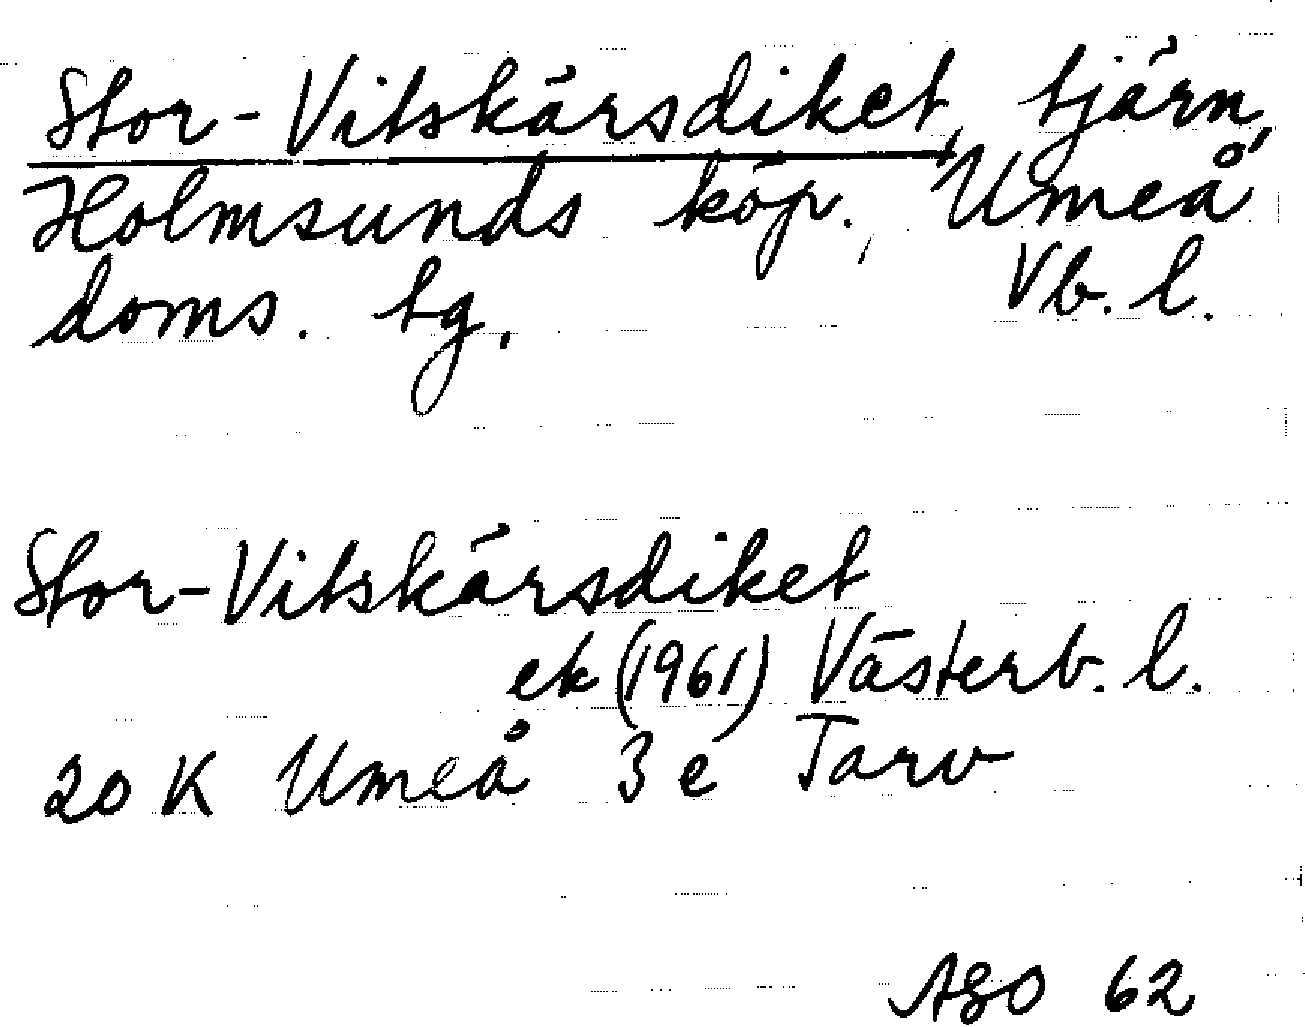 Stor-Vitskärsdiket, tjärn,
Holmsunds köp., Umeå
doms. tg. Vb. l.
Stor-Vitskärsdiket
ek (1961) Västerb. l.
20 K Umeå 3 e Tarv
ASO 62